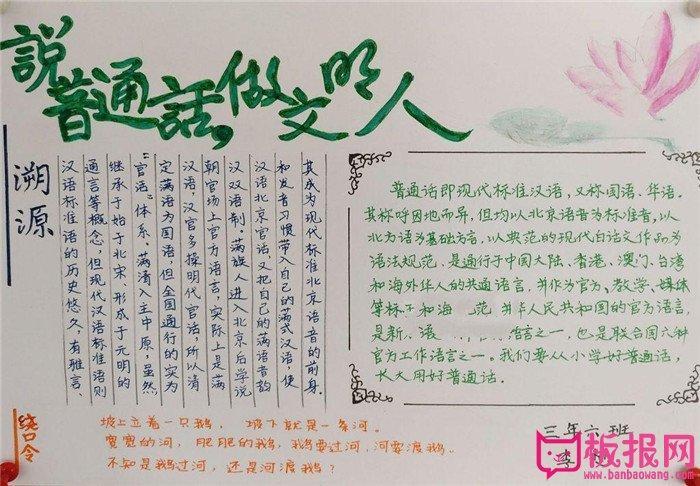 説普通話，做文明人
溯源
汉语标准语的历史悠久，有雅言、
通言等概念，但现代汉语标准语则
继承于始于北宋、形成于元明的
“官话”体系，满清入主中原，虽然
定满语为国语，但全国通行的实为
汉语，汉官多操明代官话，所以清
朝官场上官方语言，实际上是满
汉双语制。满族人进入北京后学说
汉语北京官话，又把自己的满语音韵
和发音习惯带入自己的满式汉语，使
其成为现代标准北京语音的前身。
普通话即现代标准汉语，又称国语、华语。
其称呼因地而异，但均以北京语音为标准音，以
北方语为基础方言，以典范的现代白话文作品为
语法规范，是通行于中国大陆、香港、澳门、台湾
和海外华人的共通语言，并作为官方、教学、媒体
等标 和海 范 华人民共和国的官方语言，
是新 语言之一，也是联合国六种
官方工作语言之一。我们要从小学好普通话，
长大用好普通话。
绕口令
坡上立着一只鹅，坡下就是一条河。
宽宽的河，肥肥的鹅，鹅要过河，河要渡鹅。
不知是鹅过河，还是河渡鹅？
三年六班
李
板报网
www.banbaowang.com